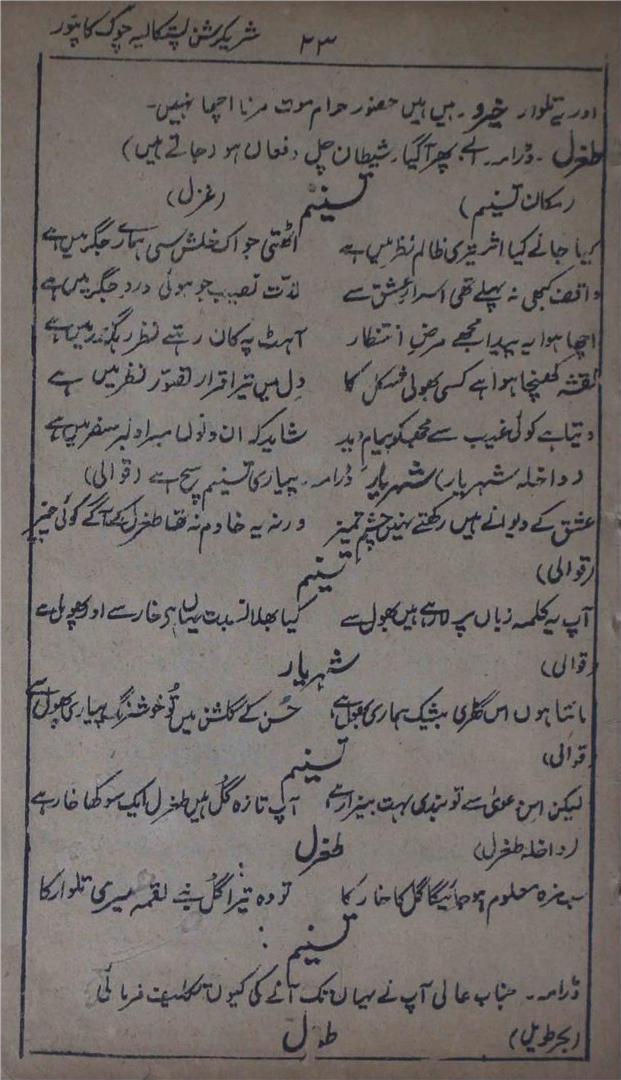 ۲۳ شریکرشن پستکالیہ چوک کانپور
اور یے تلوار۔ خیرو۔ ہیں ہیں حضور حرام موت مرنا اچھا نہیں۔
طغرل۔ ڈرامہ۔ ابے پھر آگیا۔ شیطان چل دفعان ہو (جاتے ہیں)
(مکان تسنیم) تسنیم (غزل)
کیا جانے کیا اثر تیری ظالم نظر میں ہے اٹھتی جو اک خلش سی ہمارے جگر میں ہے
واقف کبھی نہ پہلے تھی اسرارِ عشق سے لذت نصیب جو ہوئی دردِ جگر میں ہے
اچھا ہوا یہ پیدا مجھے مرضِ انتظار آہٹ پہ کان رہتے نظر رہگذر میں ہے
نقشہ کھنچا ہوا ہے کسی بھولی شکل کا دل میں تیرا قرار تصور نظر میں ہے
دیتا ہے کوئی غیب سے مجھکو پیام دید شاید کہ ان دونوں میرا دلبر سفر میں ہے
(داخلہ شہریار) شہریار ڈرامہ۔ پیاری تسنیم سچ ہے (قوالی)
عشق کے دیوانے ہیں رکھتے نہیں چشم تمیز ورنہ یہ خادم نہ تھا طغرل کے آگے کوئی چیز
(قوالی) تسنیم
آپ یہ کلمہ زباں پر لا رہے ہیں بھول سے کیا بھلا نسبت یہاں ہر خار سے اور پھول سے
(قوالی) شہریار
مانتا ہوں اس گھڑی بیشک ہماری بھول ہے حُسن کے گلشن میں تُو خوشرنگ پیاری پھول ہے
(قوالی) تسنیم
لیکن اس دعویٰ سے تو بندی بہت بیزار ہے آپ تازہ گُل ہیں طغرل ایک سوکھا خار ہے
(داخلہ طغرل) طغرل
سب مزہ معلوم ہو جائیگا گل کا خار کا تو وہ تیرا گُل بنے لقمہ میری تلوار کا
تسنیم
ڈرامہ۔ جناب عالی آپ نے یہاں تک آنے کی کیوں تکلیف فرمائی
(بحر طویل) طغرل